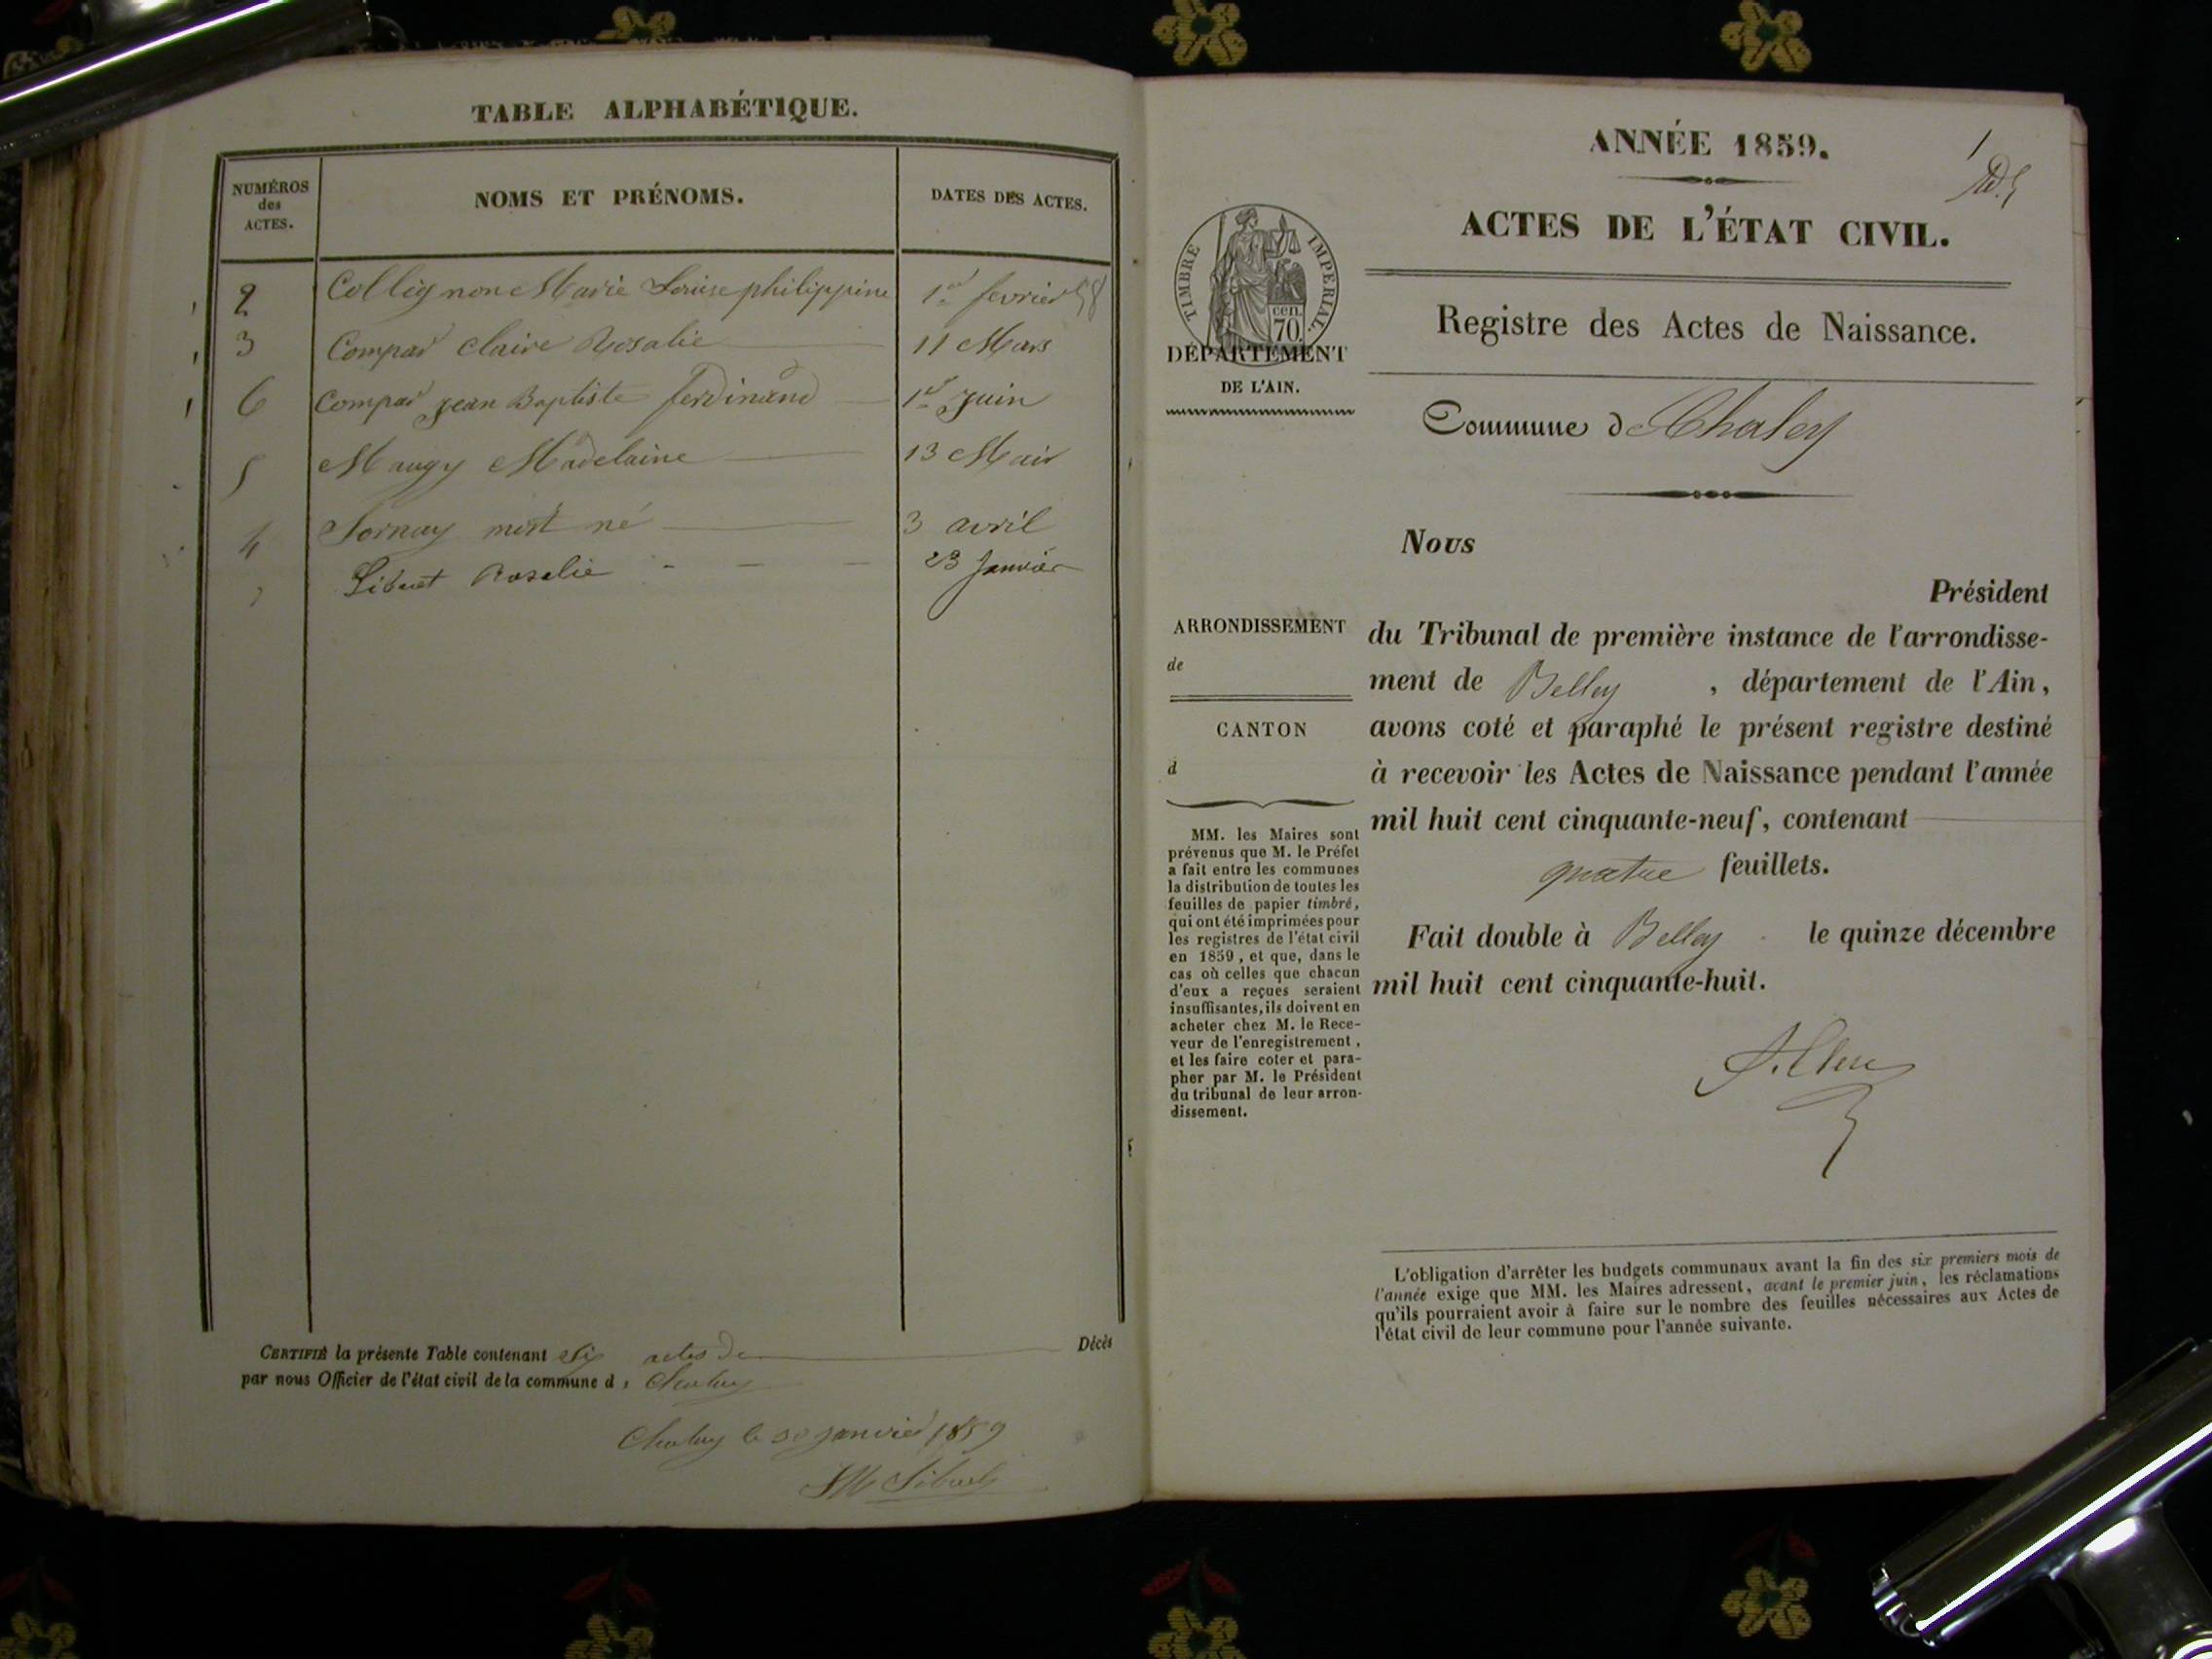 TABLE ALPHABÉTIQUE.
NUMÉROS des ACTES.
NOMS ET PRÉNOMS.
DATES DES ACTES.
2 Collignon Marie Louise philippine 1er fevrier 58
3 Compar Claire Rosalie 11 Mars
6 Compar jean Baptiste ferdinand 1er Juin
5 Maugy Madelaine 13 Mai
4 Sornay mort né 3 avril
Sibuet Rosalie 23 Janvier
CERTIFIÉ la présente Table contenant Six actes de Décès
par nous Officier de l'état civil de la commune d Chaley
Chaley le 30 janvier 1859
Sibuet
1
ANNÉE 1859.
ACTES DE L'ÉTAT CIVIL.
TIMBRE IMPÉRIAL.
cen.
70.
DÉPARTEMENT
DE L'AIN.
Registre des Actes de Naissance.
Commune d Chaley
Nous
Président
du Tribunal de première instance de l'arrondisse-
ment de Belley , département de l'Ain,
avons coté et paraphé le présent registre destiné
à recevoir les Actes de Naissance pendant l'année
mil huit cent cinquante-neuf, contenant
quatre feuillets.
Fait double à Belley le quinze décembre
mil huit cent cinquante-huit.
ARRONDISSEMENT
de
CANTON
d
MM. les Maires sont
prévenus que M. le Préfet
a fait entre les communes
la distribution de toutes les
feuilles de papier timbré,
qui ont été imprimées pour
les registres de l'état civil
en 1859, et que, dans le
cas où celles que chacun
d'eux a reçues seraient
insuffisantes, ils doivent en
acheter chez M. le Rece-
veur de l'enregistrement,
et les faire coter et para-
pher par M. le Président
du tribunal de leur arron-
dissement.
L'obligation d'arrêter les budgets communaux avant la fin des six premiers mois de
l'année exige que MM. les Maires adressent, avant le premier juin, les réclamations
qu'ils pourraient avoir à faire sur le nombre des feuilles nécessaires aux Actes de
l'état civil de leur commune pour l'année suivante.